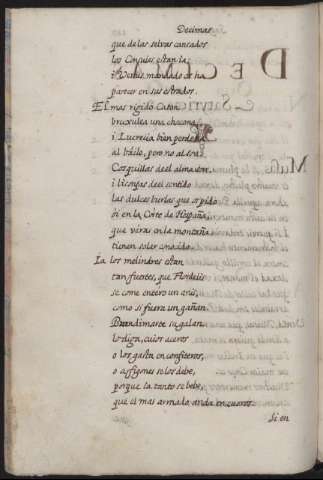 Decimas
que de las selvas cansados
los Consules estan ia
i Venus mandado os ha
parecer en sus estrados.
El mas rigido Caton
bruxulea una chacona
i Lucrecia bien perdona
al baile, pero no al son
Cosquillas de el alma son
i lisonjas de el sentido
las dulces burlas que os pido
oi en la Corte de España,
que viras en la montaña
tienen solar conocido.
Ia los melindres estan
tan fuertes, que Flordelis
se come entero un anis,
como si fuera un gañan.
Brandimarte su galan
lo diga, cuios aceros
o los gasta en confiteros,
o affligenselos debe,
porque la tanto se bebe,
que el mas armado anda en cueros.
Si en